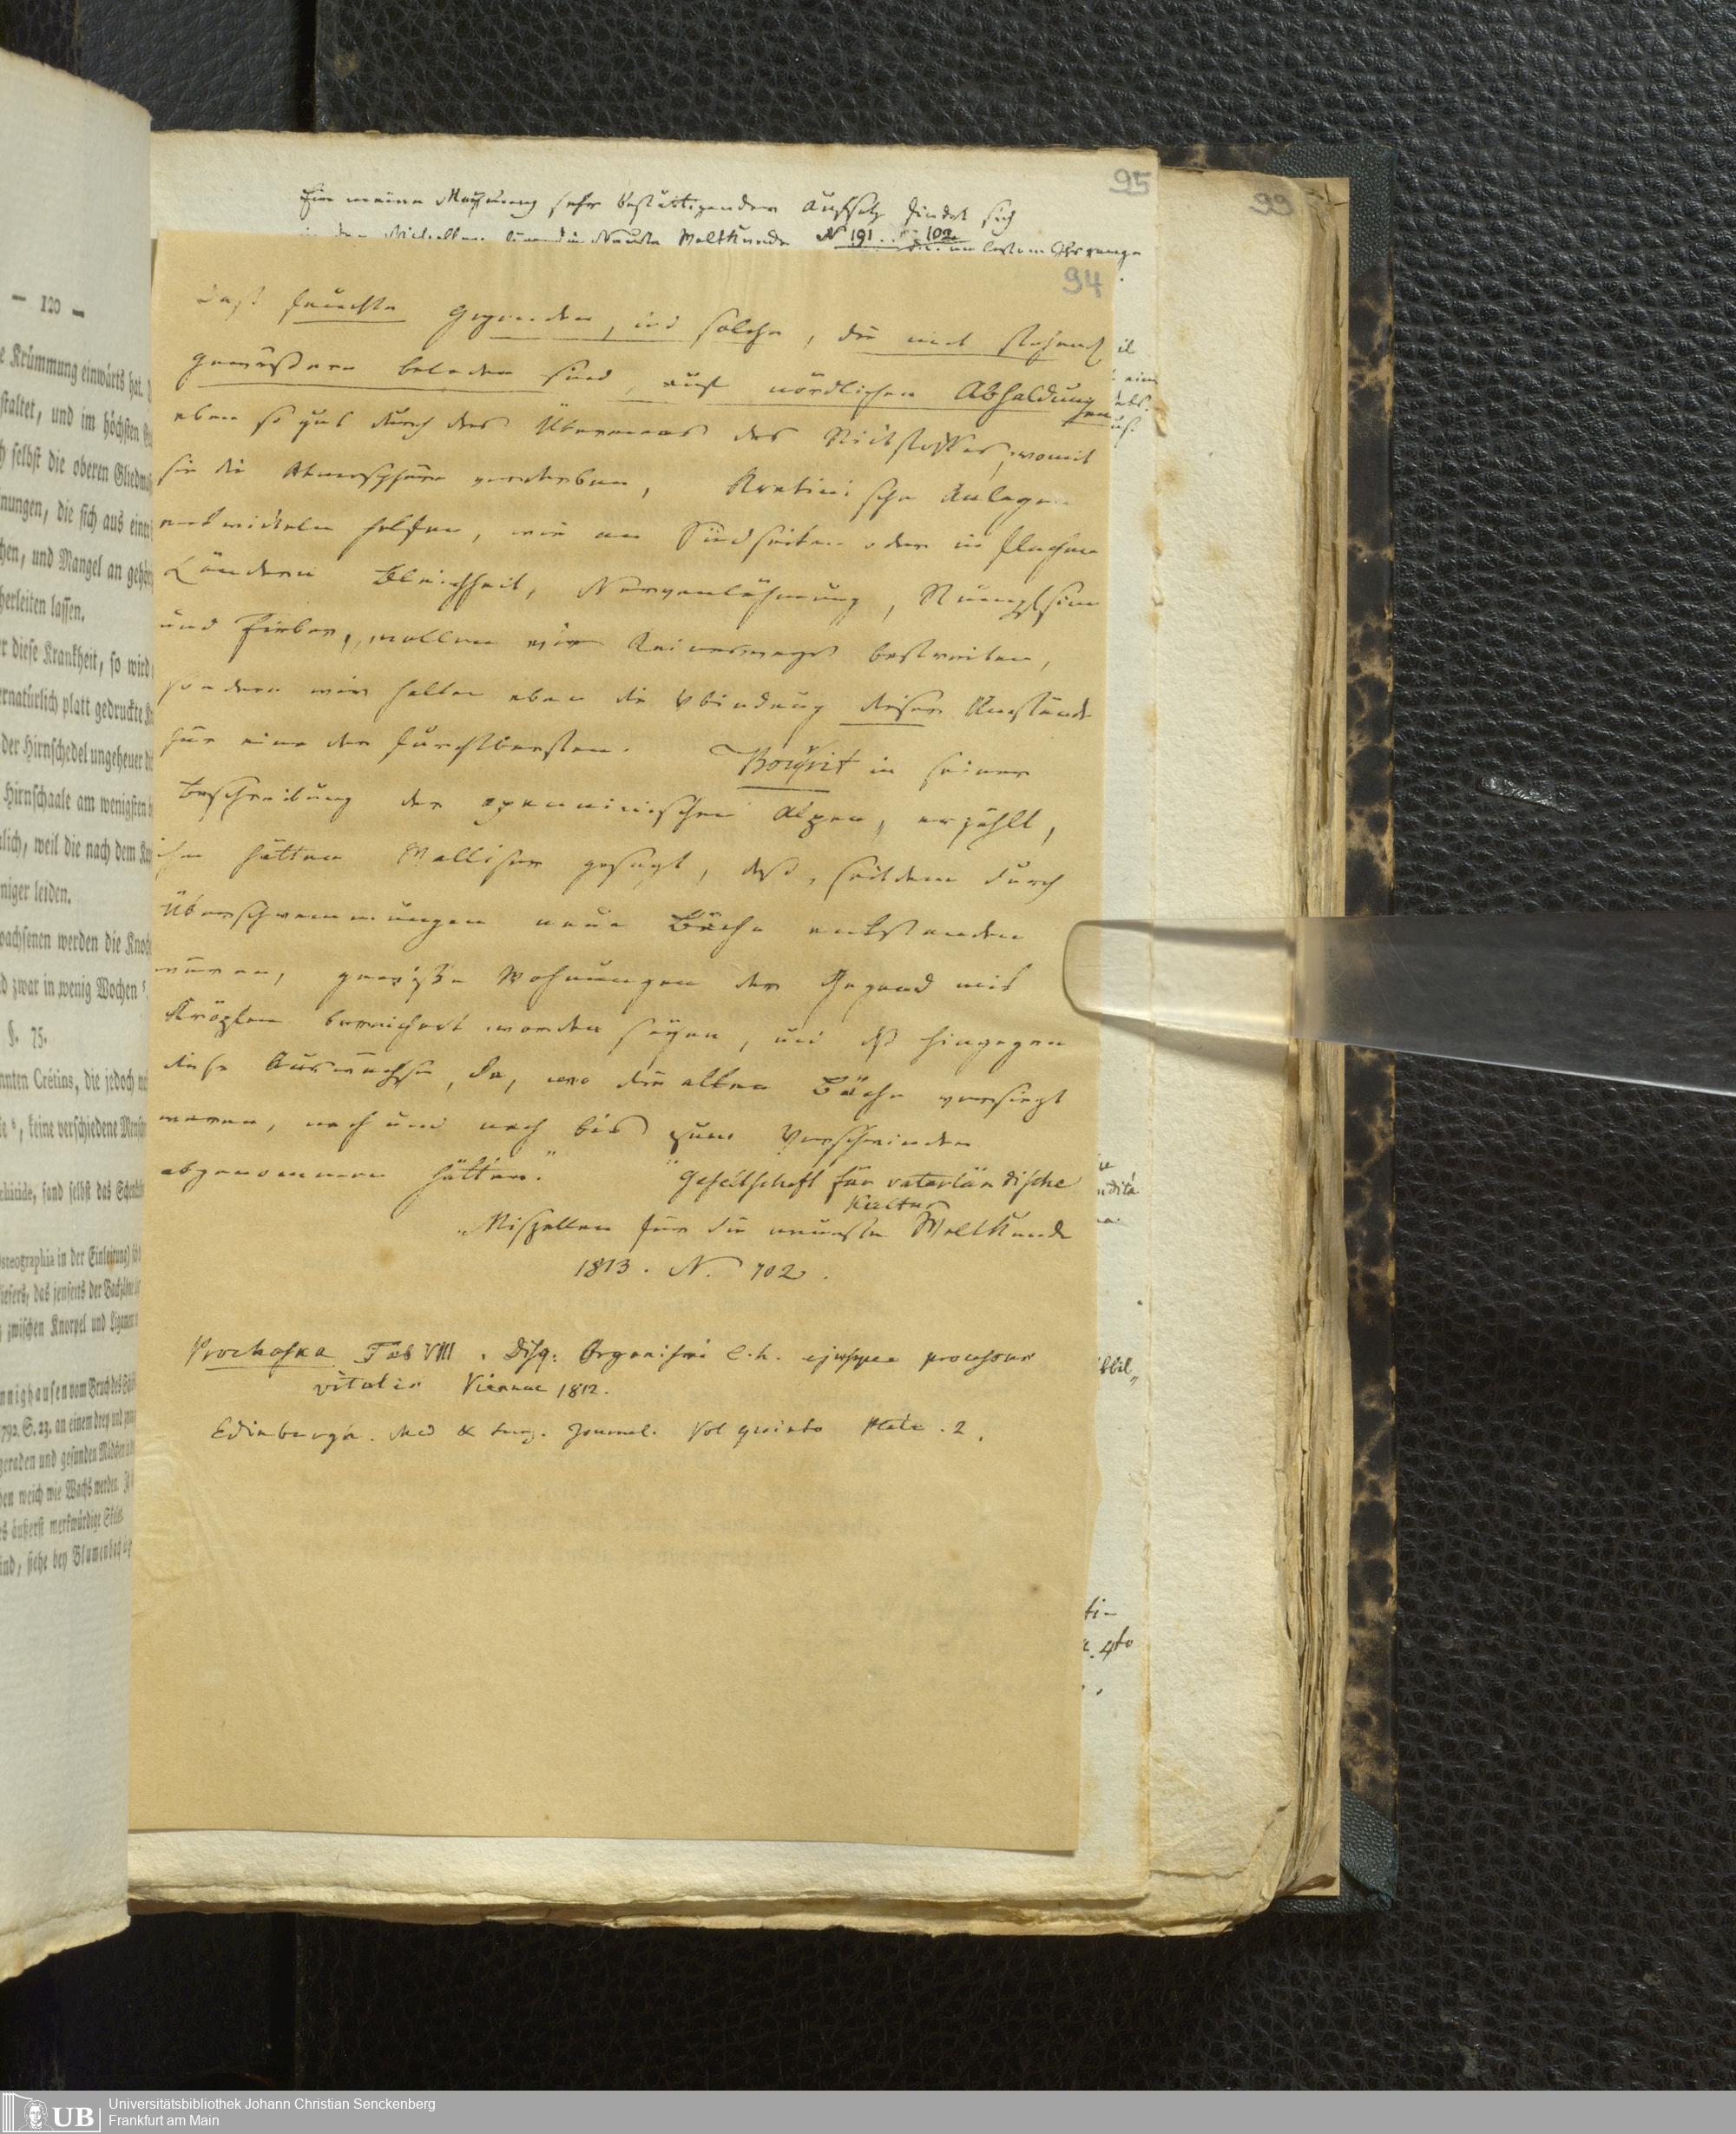 — 120 —
e Krümmung einwärts hat.
staltet, und im höchsten
h selbst die oberen Gliedma
nungen, die sich aus eine
hen, und Mangel an gehör
herleiten lassen.
r diese Krankheit, so wird
ernatürlich platt gedruckte
der Hirnschedel ungeheuer
Hirnschaale am wenigsten
lich, weil die nach dem
niger leiden.
wachsenen werden die Knoch
d zwar in wenig Wochen
§. 75.
nnten Crétins, die jedoch
ie, keine verschiedene Mensch
rhitide, fand selbst das
Osteographia in der Einleitung)
iefers, das jenseits der
zwischen Knorpel und
nnighausen vom Bruch des
1792. S. 23. an einem drey und
geraden und gesunden Mädchen
hen weich wie Wachs werden.
es äußerst merkwürdige
sind, siehe bey Blumenbach
95
99
Ein meine Meynung sehr bestättigender Aufsatz findet sich
Neueste Weltkunde N 191 102
94
Daß feuchte Gegenden, und solche, die mit stehend
Gewässern beladen sind, auf nördlichen Abhaldungen
eben so gut durch das Übermaas des Stickstoffes, womit
sie die Atmosphäre verderben, Kretinische Anlagen
entwickeln helfen, wie an Südseiten oder in flachen
Ländern Bleichheit, Nervenlähmung, Stumpfsinn
und Fieber, wollen wir keineswegs bestreiten,
sondern wir halten eben die Vbindung dieser Umstände
für eine der furchtbarsten. Bourrit in seiner
Beschreibung der apenninischen Alpen, erzählt,
ihm hätten Walliser gesagt, daß, seitdem durch
Überschwemmungen neue Bäche entstanden
wären, gewisse Wohnungen der Gegend mit
Kröpfen bereichert worden seyen, und daß hingegen
diese Auswüchse, da, wo die alten Bäche versiegt
waren, nach und nach bis zum Verschwinden
abgenommen hätten." "Gesellschaft für vaterländische
Kultur
"Miszellen für die neueste Weltkunde
1813. N. 102.
Prochaska Tab VIII. Disq. Organismi c. h. ejusque processus
vitalis Viennae 1812.
Edinburgh. Med & surg. Journal. Vol quinto Plate. 2.
4to
Universitätsbibliothek Johann Christian Senckenberg
Frankfurt am Main
UB